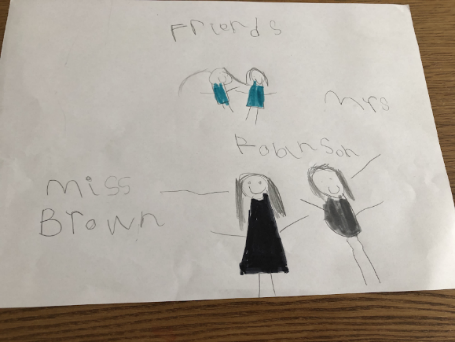 Friends
Mrs
Robinson
miss
Brown